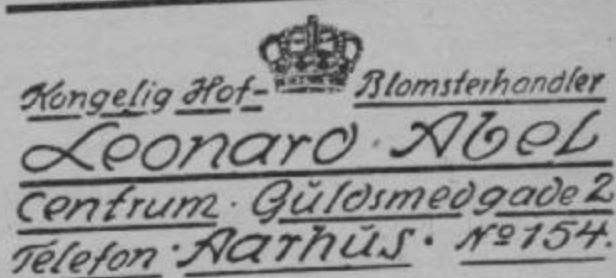 Kongelig Hof- Blomsterhandler
Leonard · Abel
Centrum · Gŭldsmedgade 2
Telefon · Aarhŭs · № 154.